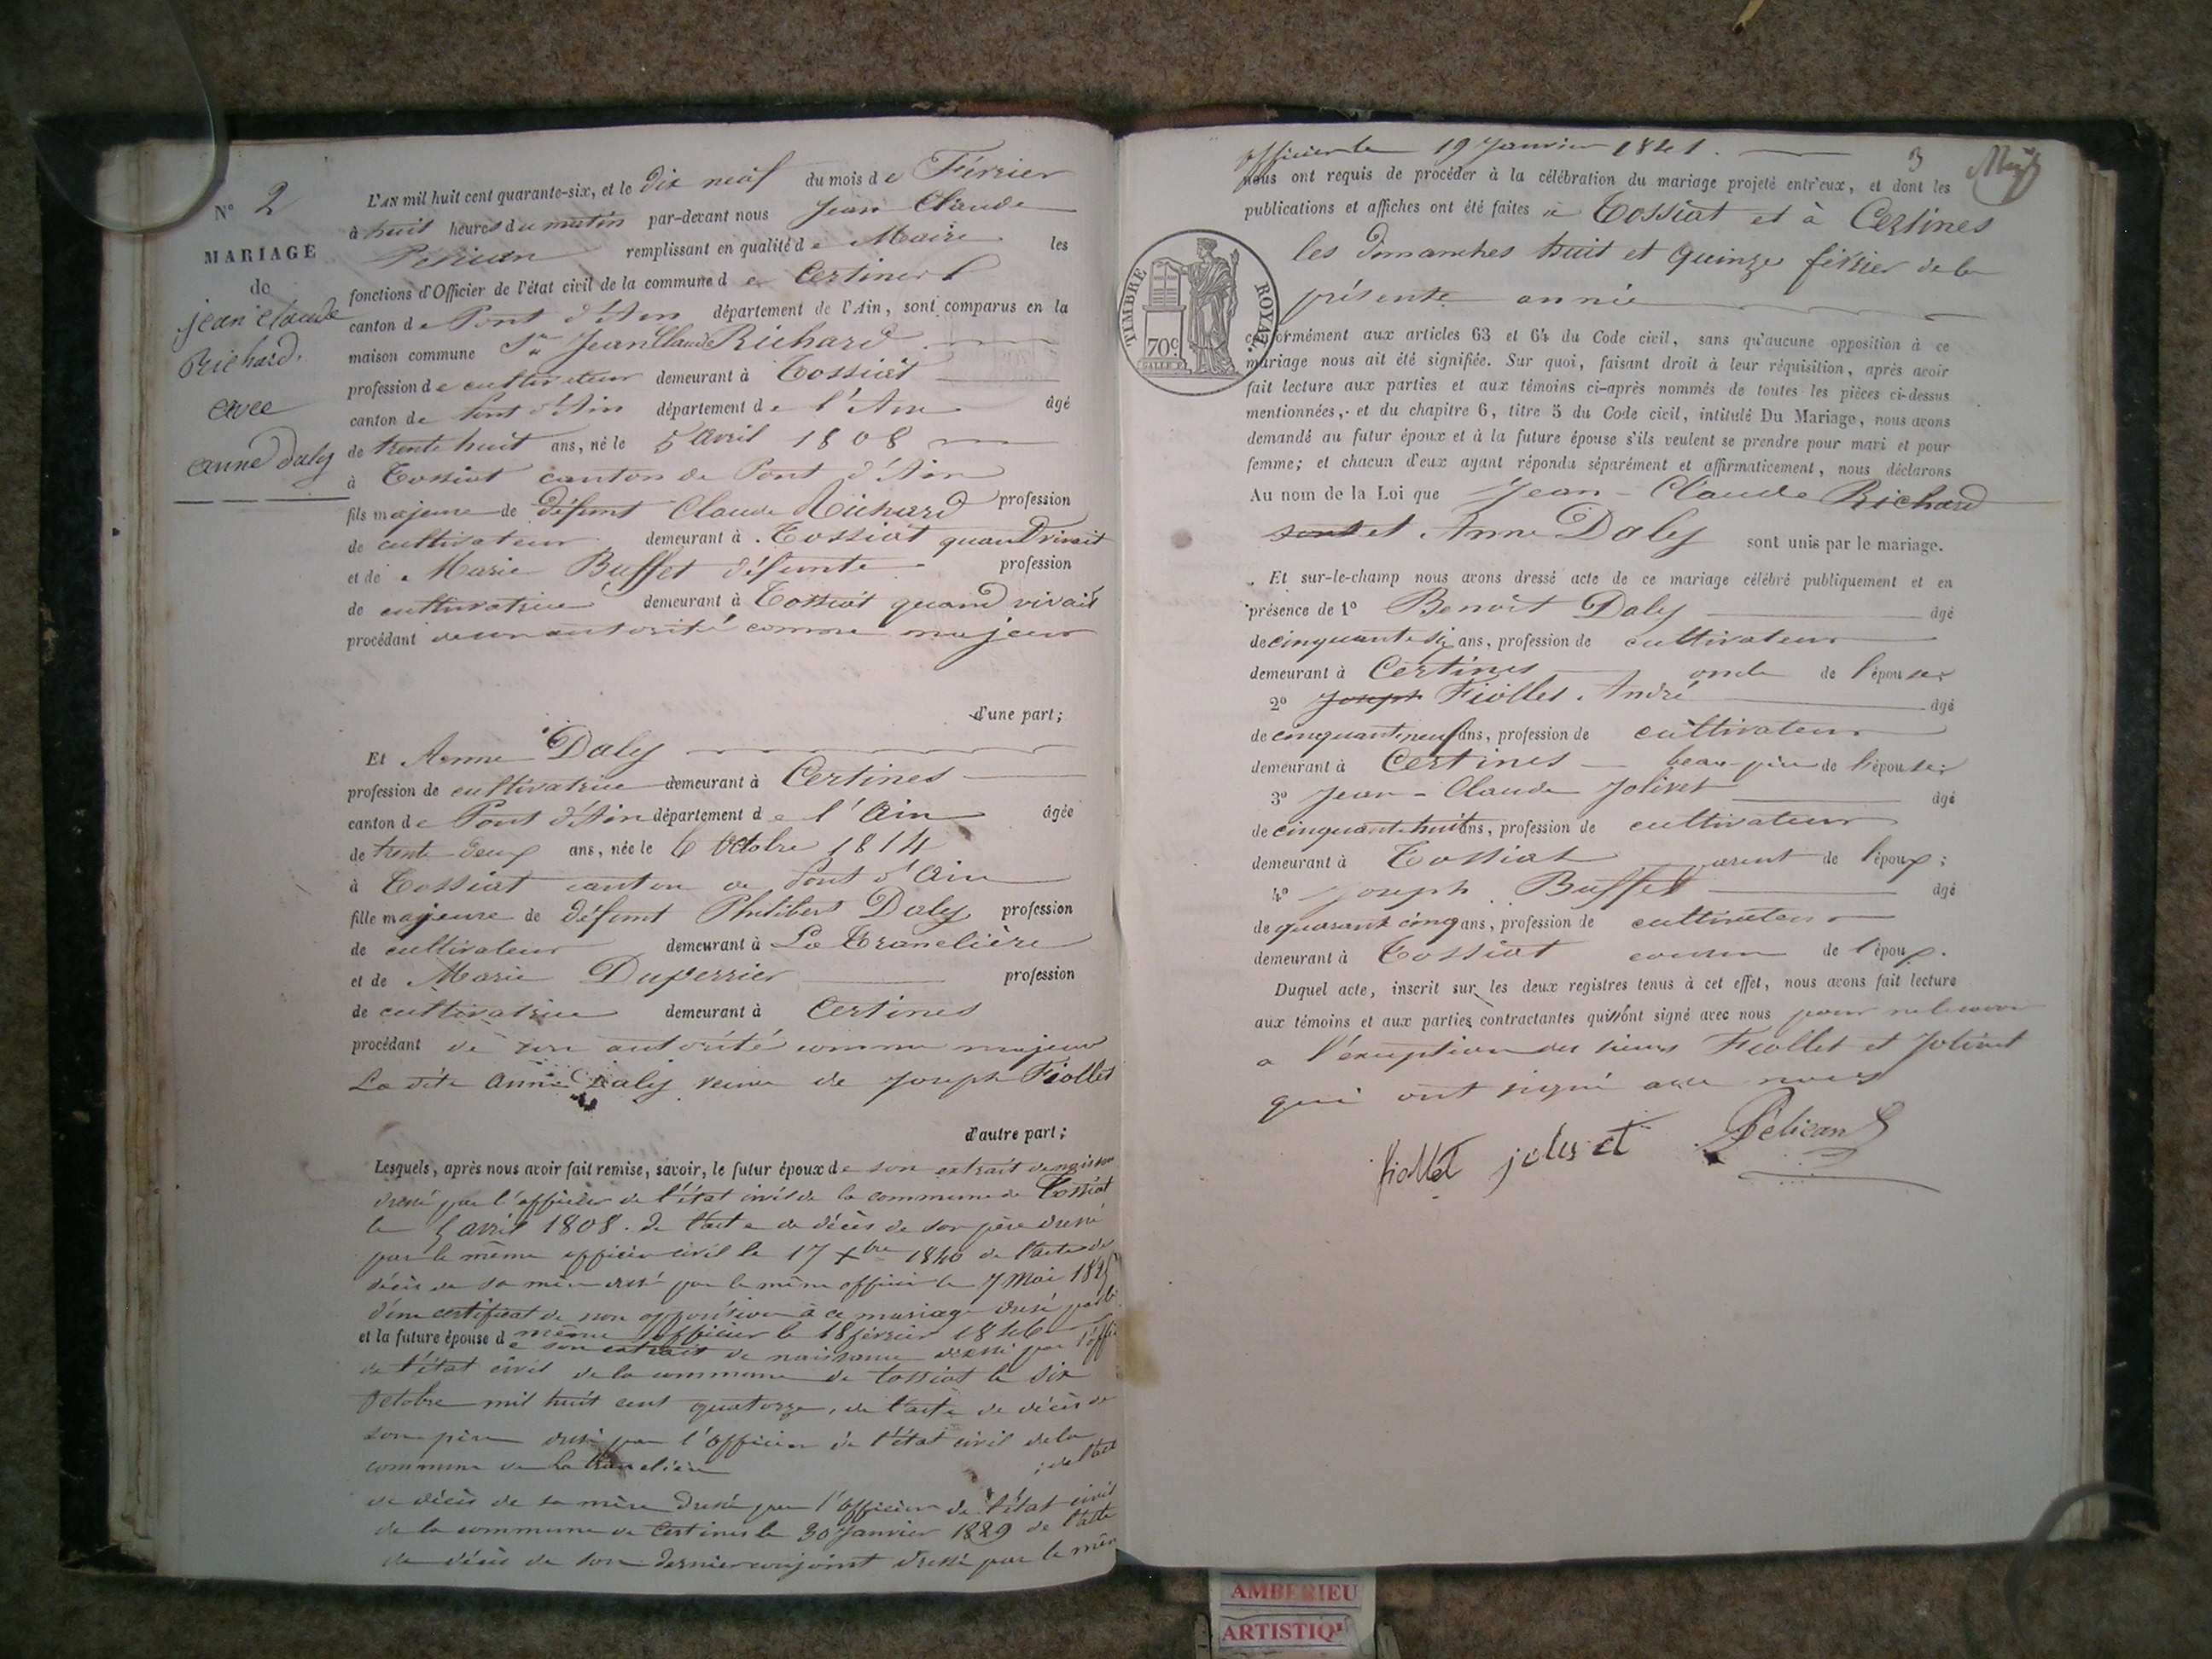 N° 2
MARIAGE
de
jean claude
Richard
avec
anne Daly
L'AN mil huit cent quarante-six, et le dix neuf du mois de Février
à huit heures du matin par-devant nous Jean Claude
remplissant en qualité de Maire les
fonctions d'Officier de l'état civil de la commune de Certines
canton de Pont d'Ain département de l'Ain, sont comparus en la
maison commune Sr Jean Claude Richard
profession de cultivateur demeurant à Tossiat
canton de Pont d'Ain département de l'Ain âgé
de trente huit ans, né le 5 avril 1808
à Tossiat canton de Pont d'Ain
fils majeur de défunt Claude Richard profession
de cultivateur demeurant à Tossiat quand vivait
et de Marie Buffet défunte profession
de cultivatrice demeurant à Tossiat quand vivait
procédant de son autorité comme majeur
d'une part;
Et Anne Daly
profession de cultivatrice demeurant à Certines
canton de Pont d'Ain département de l'Ain âgée
de trente deux ans, née le 6 Octobre 1814
à Tossiat canton de Pont d'Ain
fille majeure de défunt Philibert Daly profession
de cultivateur demeurant à La Tranclière
et de Marie Duperrier profession
de cultivatrice demeurant à Certines
procédant de son autorité comme majeur
La dite Anne Daly veuve de Joseph Fiollet
d'autre part;
Lesquels, après nous avoir fait remise, savoir, le futur époux de son extrait de naissance
dressé par l'officier de l'état civil de la commune de Tossiat
le 5 avril 1808. de l'acte de décès de son père dressé
par le même officier civil le 17 Xbre 1840 de l'acte de
décès de sa mère dressé par le même officier le 7 Mai
d'un certificat de non opposition à ce mariage dressé par le
même officier le 18 février 1846
et la future épouse de son extrait de naissance dressé par l'offi
de l'état civil de la commune de Tossiat le six
Octobre mil huit cent quatorze, de l'acte de décès de
son père dressé par l'officier de l'état civil de la
commune de La Tranclière ; de l'acte
de décès de sa mère dressé par l'officier de l'état civil
de la commune de Certines le 30 Janvier 1829 de l'acte
de décès de son dernier conjoint dressé par le mêm
officier le 19 Janvier 1841.
3
nous ont requis de procéder à la célébration du mariage projeté entr'eux, et dont les
publications et affiches ont été faites à Tossiat et à Certines
les dimanches huit et quinze février de la
présente année
TIMBRE ROYAL
70c
conformément aux articles 63 et 64 du Code civil, sans qu'aucune opposition à ce
mariage nous ait été signifiée. Sur quoi, faisant droit à leur réquisition, après avoir
fait lecture aux parties et aux témoins ci-après nommés de toutes les pièces ci-dessus
mentionnées, et du chapitre 6, titre 5 du Code civil, intitulé Du Mariage, nous avons
demandé au futur époux et à la future épouse s'ils veulent se prendre pour mari et pour
femme; et chacun d'eux ayant répondu séparément et affirmativement, nous déclarons
Au nom de la Loi que Jean-Claude Richard
et Anne Daly sont unis par le mariage.
Et sur-le-champ nous avons dressé acte de ce mariage célébré publiquement et en
présence de 1° Benoit Daly âgé
de cinquante six ans, profession de cultivateur
demeurant à Certines oncle de l'épouse;
2° Joseph Fiollet André âgé
de cinquante neuf ans, profession de cultivateur
demeurant à Certines beau-père de l'épouse;
3° Jean-Claude Jolivet âgé
de cinquante huit ans, profession de cultivateur
demeurant à Tossiat parent de l'époux;
4° Joseph Buffet âgé
de quarante cinq ans, profession de cultivateur
demeurant à Tossiat cousin de l'époux.
Duquel acte, inscrit sur les deux registres tenus à cet effet, nous avons fait lecture
aux témoins et aux parties contractantes qui n'ont signé avec nous pour ne le savoir
a l'exception des sieurs Fiollet et Jolivet
qui ont signé avec nous
fiollet jolivet Pélican
AMBERIEU
ARTISTIQ